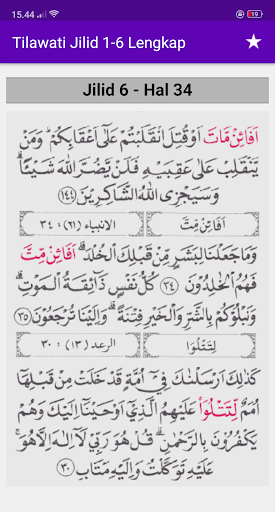 15.44
Tilawati Jilid 1-6 Lengkap
Jilid 6 - Hal 34
اَفَائِنْ مَّاتَ اَوْ قُتِلَ انْقَلَبْتُمْ عَلٰٓى اَعْقَابِكُمْ ۗ وَمَنْ
يَنْقَلِبْ عَلٰى عَقِبَيْهِ فَلَنْ يَضُرَّ اللهَ شَيْئًا ۗ
وَسَيَجْزِى اللهُ الشَّاكِرِيْنَ ﴿١٤٤﴾
اَفَائِنْ مِّتَّ
الانبياء (٢١) : ٣٤
وَمَاجَعَلْنَا لِبَشَرٍ مِّنْ قَبْلِكَ الْخُلْدَ ۗ اَفَائِنْ مِّتَّ
فَهُمُ الْخٰلِدُوْنَ ﴿٣٤﴾ كُلُّ نَفْسٍ ذَآئِقَةُ الْمَوْتِ ۗ
وَنَبْلُوْكُمْ بِالشَّرِّ وَالْخَيْرِ فِتْنَةً ۗ وَاِلَيْنَا تُرْجَعُوْنَ ﴿٣٥﴾
لِتَتْلُوَا۟
الرعد (١٣) : ٣٠
كَذٰلِكَ اَرْسَلْنٰكَ فِيْٓ اُمَّةٍ قَدْ خَلَتْ مِنْ قَبْلِهَآ
اُمَمٌ لِّتَتْلُوَا۟ عَلَيْهِمُ الَّذِيْٓ اَوْحَيْنَآ اِلَيْكَ وَهُمْ
يَكْفُرُوْنَ بِالرَّحْمٰنِ ۗ قُلْ هُوَ رَبِّيْ لَآ اِلٰهَ اِلَّا هُوَ ۚ
عَلَيْهِ تَوَكَّلْتُ وَاِلَيْهِ مَتَابِ ﴿٣٠﴾